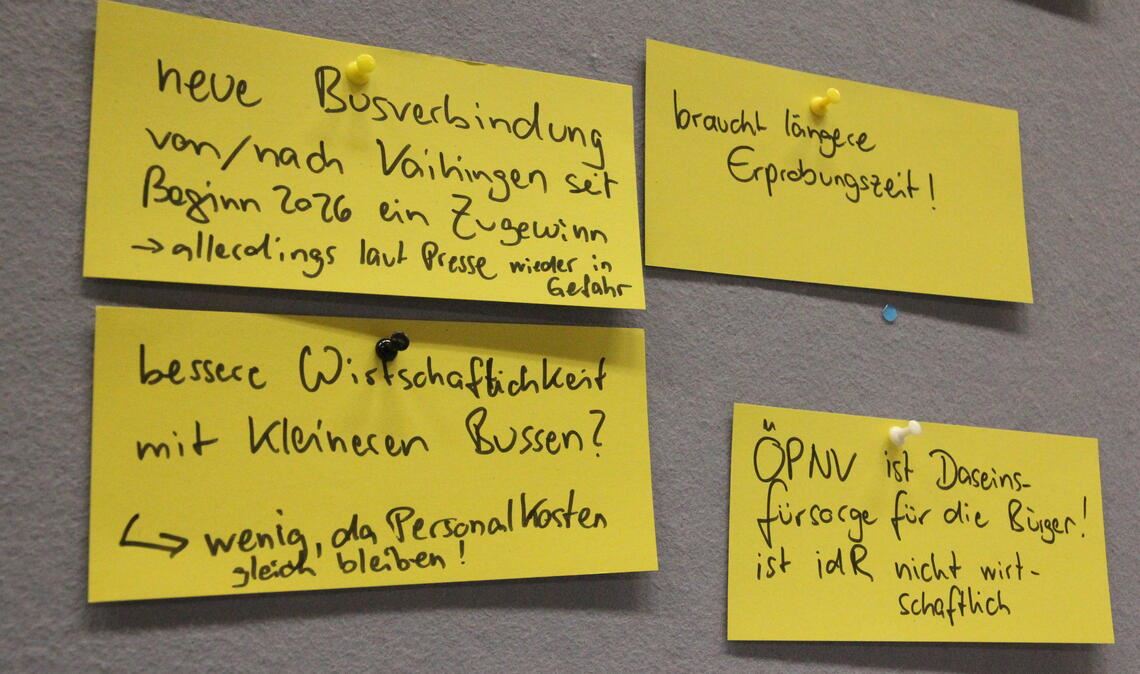 neue Busverbindung
von/nach Vaihingen seit
Beginn 2026 ein Zugewinn
→ allerdings laut Presse wieder in
Gefahr
braucht längere
Erprobungszeit!
bessere Wirtschaftlichkeit
mit kleineren Bussen?
↳ wenig, da Personalkosten
gleich bleiben!
ÖPNV ist Daseins-
fürsorge für die Bürger!
ist idR nicht wirt-
schaftlich